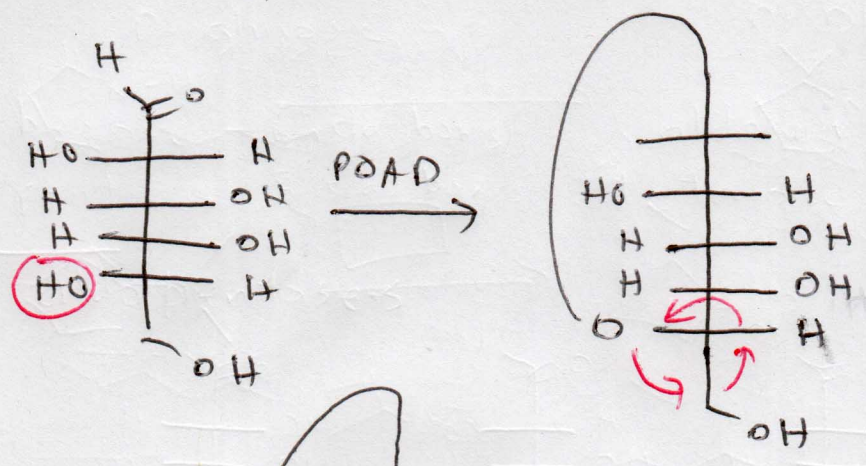 H
O
HO H
H OH
H OH
HO H
OH
POAD
HO H
H OH
H OH
O H
OH